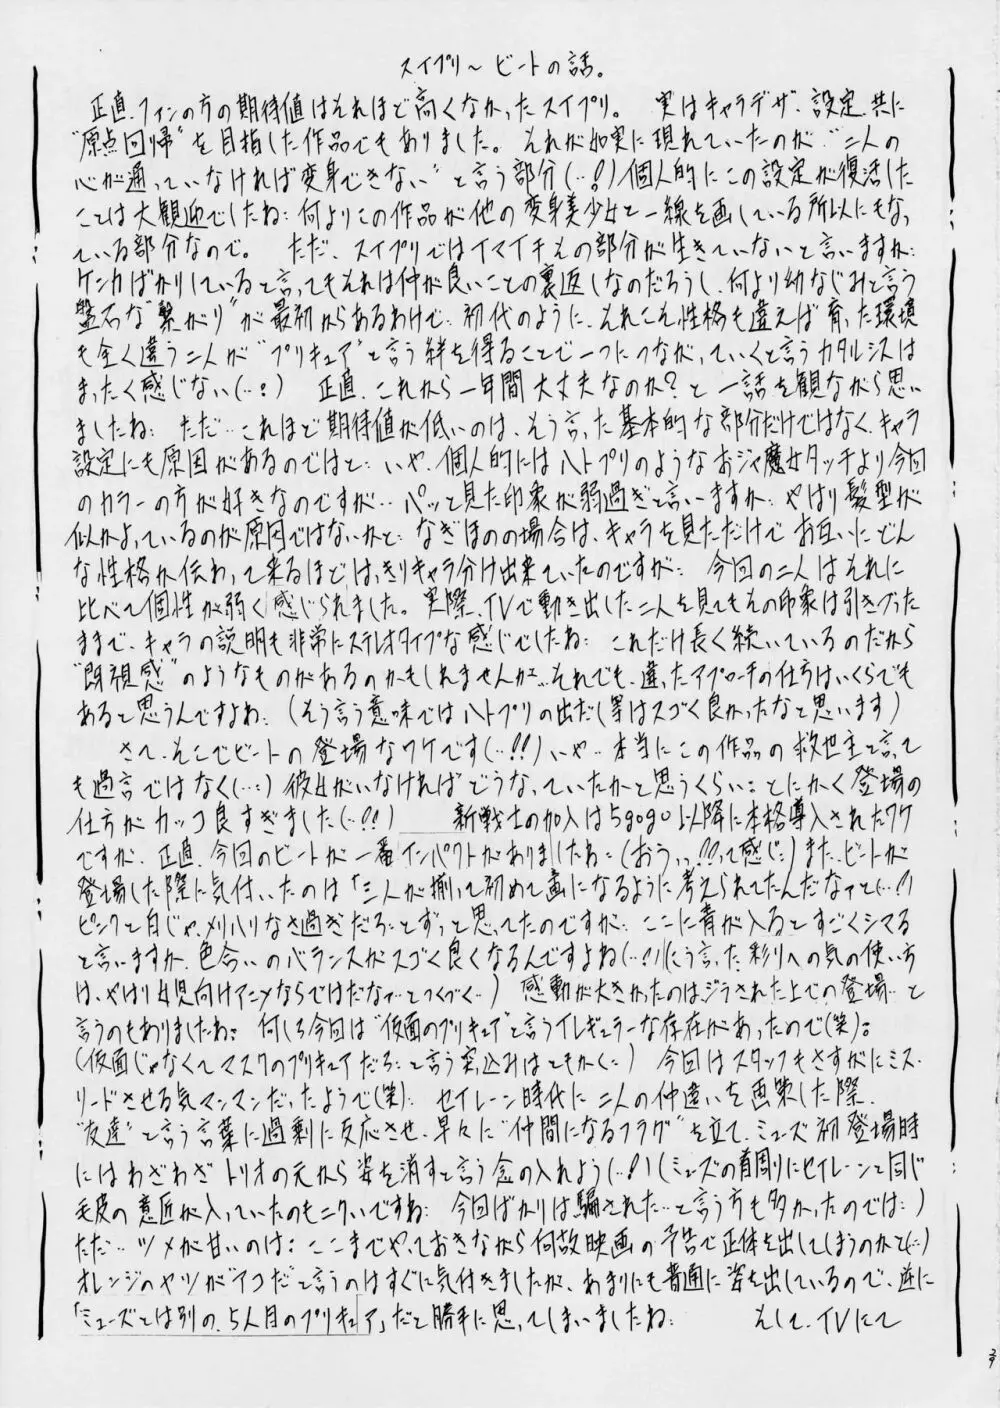 スイプリ～ビートの話。
正直、ファンの方の期待値はそれほど高くなかったスイプリ。 実はキャラデザ、設定、共に
"原点回帰"を目指した作品でもありました。それが如実に現れていたのが、"二人の
心が通っていなければ変身できない"と言う部分(…!)個人的にこの設定が復活した
ことは大歓迎でしたね… 何よりこの作品が他の変身美少女と一線を画している所以にもなっ
ている部分なので。 ただ、スイプリではイマイチその部分が生きていないと言いますか…
ケンカばかりしていると言ってもそれは仲が良いことの裏返しなのだろうし、何より幼なじみと言う
盤石な"繋がり"が最初からあるわけで… 初代のように、それこそ性格も違えば育った環境
も全く違う二人が"プリキュア"と言う絆を得ることで一つにつながっていくと言うカタルシスは
まったく感じない(…!) 正直、これから一年間大丈夫なのか?と一話を観ながら思い
ましたね… ただ…これほど期待値が低いのは、そう言った基本的な部分だけではなく、キャラ
設定にも原因があるのではと… いや、個人的にはハトプリのようなおジャ魔女タッチより今回
のカラーの方が好きなのですが…パッと見た印象が弱過ぎと言いますか… やはり髪型が
似かよっているのが原因ではないかと… なぎほのの場合は、キャラを見ただけでお互いにどん
な性格か伝わって来るほどはっきりキャラ分け出来ていたのですが… 今回の二人はそれに
比べて個性が弱く感じられました。実際、TVで動き出した二人を見てもその印象は引きずった
ままで、キャラの説明も非常にステレオタイプな感じでしたね… これだけ長く続いているのだから
"既視感"のようなものがあるのかもしれませんが…それでも、違ったアプローチの仕方はいくらでも
あると思うんですよね… (そう言う意味ではハトプリの出だし等はスゴく良かったなと思います)
さて、そこでビートの登場なワケです(…!!)いや…本当にこの作品の救世主と言って
も過言ではなく(…)彼女がいなければどうなっていたかと思うくらい、とにかく登場の
仕方がカッコ良すぎました(…!!) 新戦士の加入は5gogo以降に本格導入されたワケ
ですが、正直、今回のビートが一番インパクトがありましたね…(おうっっ!!って感じ…)また、ビートが
登場した際に気付いたのは「三人が揃って初めて画になるように考えられてたんだなァと(…!)
ピンクと白じゃ、メリハリなさ過ぎだろ…とずっと思ってたのですが… ここに青が入るとすごくシマる
と言いますか、色合いのバランスがスゴく良くなるんですよね(…!)(こう言った彩りへの気の使い方
は、やはり女児向けアニメならではだなァ…とつくづく…) 感動が大きかったのはジラされた上での登場…と
言うのもありましたね… 何しろ今回は"仮面のプリキュア"と言うイレギュラーな存在があったので(笑)…
(仮面じゃなくてマスクのプリキュアだろ…と言う突込みはともかく…) 今回はスタッフもさすがにミス・
リードさせる気マンマンだったようで(笑)… セイレーン時代に二人の仲違いを画策した際、
"友達"と言う言葉に過剰に反応させ、早々に"仲間になるフラグ"を立て、ミューズ初登場時
にはわざわざトリオの元から姿を消すと言う念の入れよう(…!)(ミューズの首周りにセイレーンと同じ
毛皮の意匠が入っていたのもニクいですね… 今回ばかりは騙された…と言う方も多かったのでは…)
ただ…ツメが甘いのは… ここまでやっておきながら何故映画の予告で正体を出してしまうのかと(…)
オレンジのヤツが"アコだ"と言うのはすぐに気付きましたが、あまりにも普通に姿を出しているので、逆に
「ミューズとは別の、5人目のプリキュア」だと勝手に思ってしまいましたね… そして、TVにて